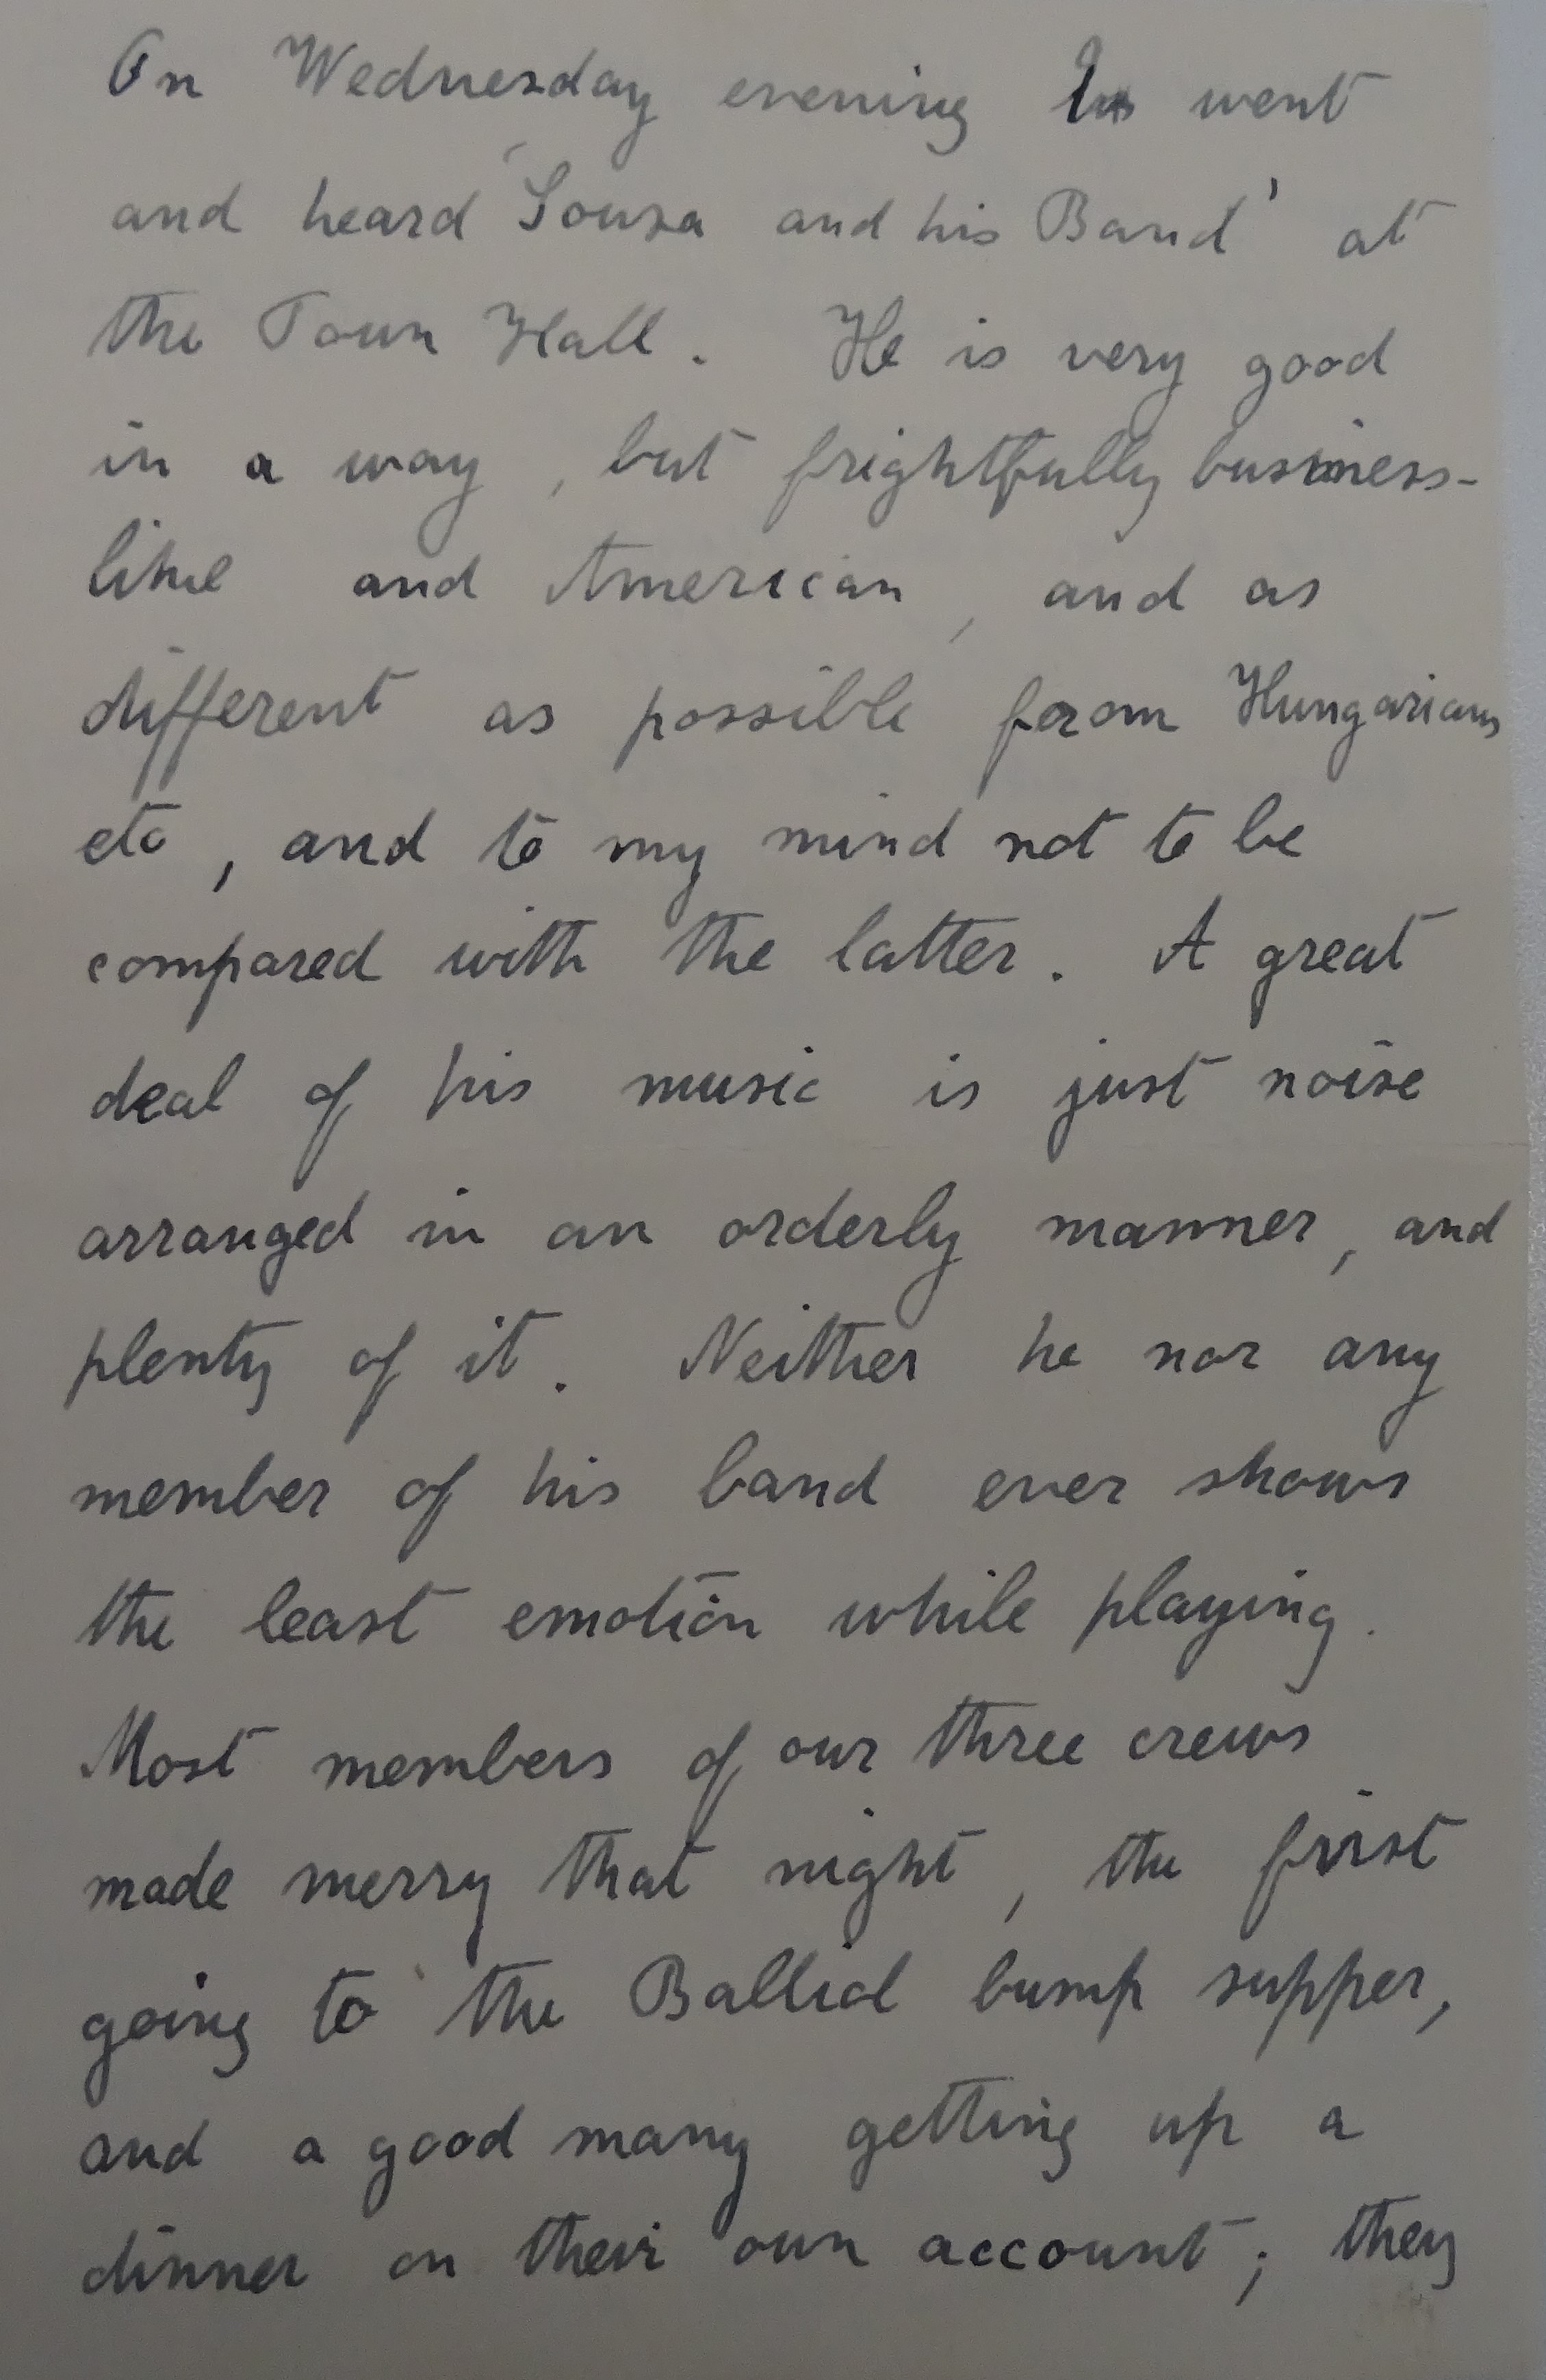 On Wednesday evening I went
and heard 'Sousa and his Band' at
the Town Hall. He is very good
in a way, but frightfully business-
like and American, and as
different as possible from Hungarians
etc, and to my mind not to be
compared with the latter. A great
deal of his music is just noise
arranged in an orderly manner, and
plenty of it. Neither he nor any
member of his band ever shows
the least emotion while playing.
Most members of our three crews
made merry that night, the first
going to the Balliol bump supper,
and a good many getting up a
dinner on their own account; they